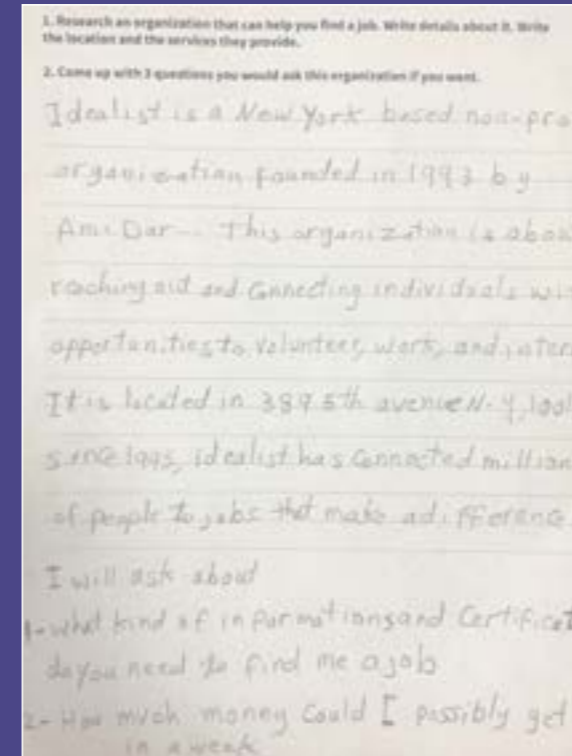 1. Research an organization that can help you find a job. Write details about it. Write
the location and the services they provide.
2. Come up with 3 questions you would ask this organization if you went.
Idealist is a New York based non-pro
organization founded in 1993 by
Ami Dar. This organization is abou
reaching out and Connecting individuals wi
opportunities to volunteer, work, and inter
It is located in 389 5th avenue N.Y, 100
since 1995, idealist has Connected million
of people to jobs that make a difference
I will ask about
1- what kind of informations and Certificat
do you need to find me a job
2- How much money Could I possibly get
in a week